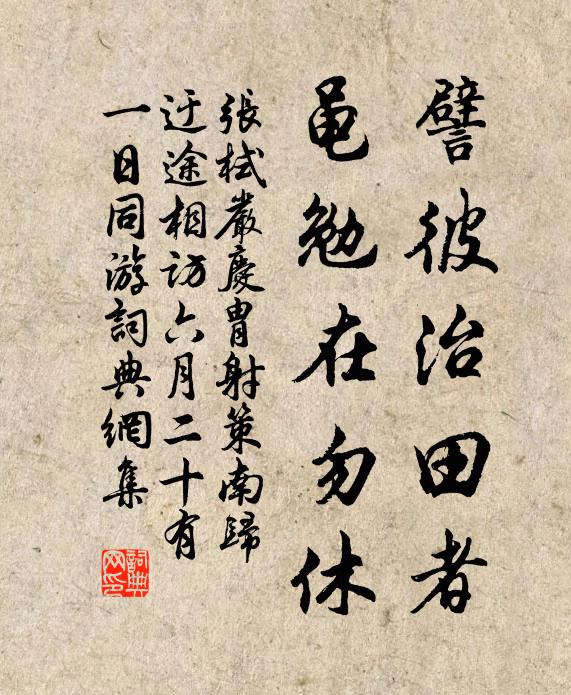 譬彼治田者
黾勉在勿休
張栻嚴慶胄射策南歸
迂途相訪六月二十有
一日同游詞典網集
詞典
网印